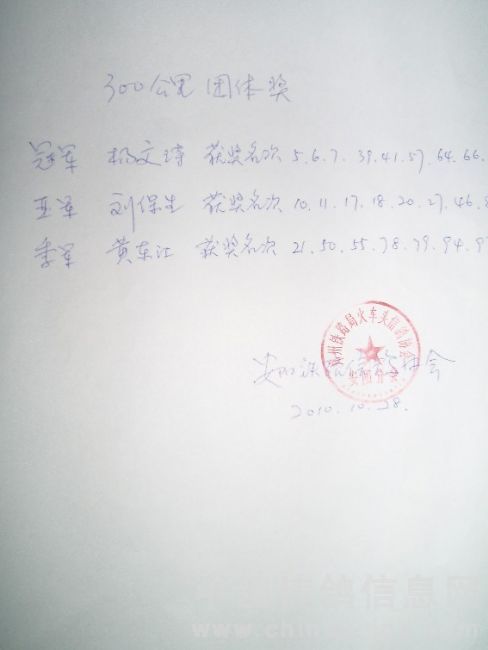 300公里 团体奖
冠军 杨文诗 获奖名次 5.6.7.39.41.57.64.66.
亚军 刘保生 获奖名次 10.11.17.18.20.27.46.
季军 黄东江 获奖名次 21.50.55.78.79.94.9
州铁路局火车头信鸽协会
信鸽协会
2010.10.28.
鸽信息网
www.chin